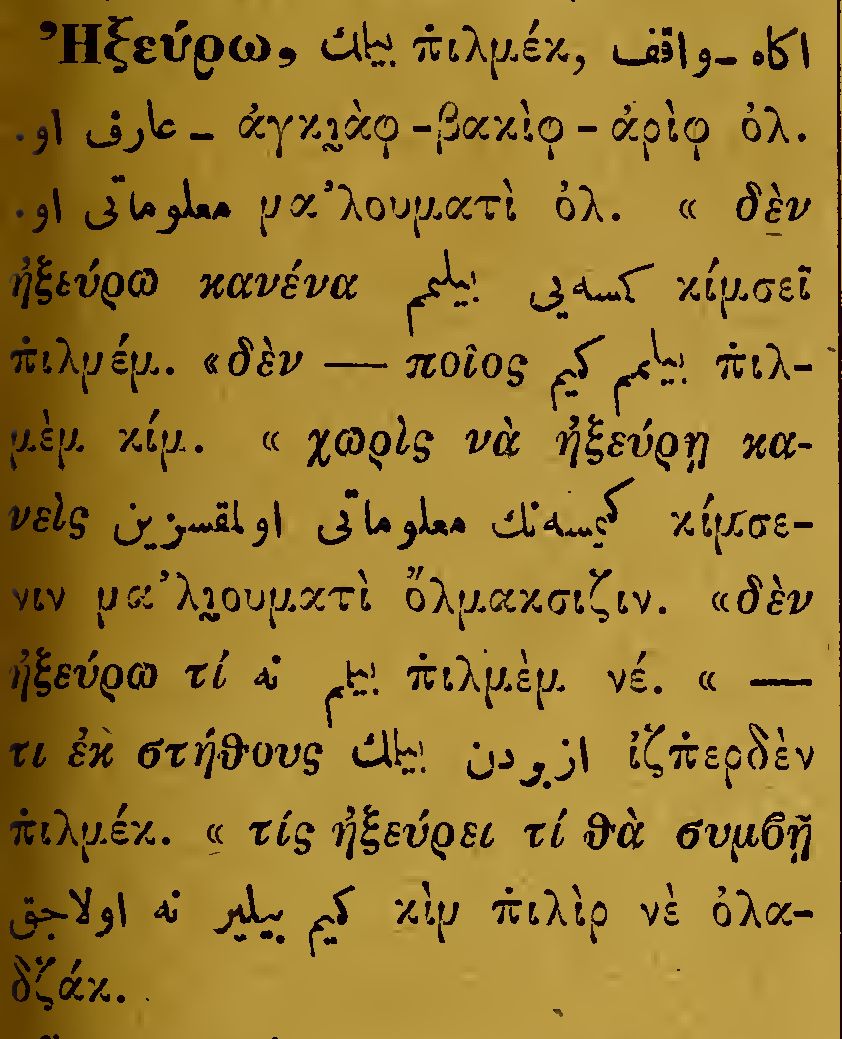 Ἠξεύρω, بيلمك π̇ιλμέκ, اكاه - واقف
- عارف او. ἀγκι̯ὰφ - βακὶφ - ἀρὶφ ὀλ.
معلوماتى او. μα᾽λουματὶ ὀλ. « δὲν
ἠξεύρω κανένα كمسه‌يى بيلمم κίμσεϊ
π̇ιλμέμ. «δὲν — ποῖος بيلمم كيم π̇ιλ-
μὲμ κίμ. « χωρὶς νὰ ἠξεύρῃ κα-
νεὶς كمسه‌نك معلوماتى اولمقسزين κίμσε-
νιν μα᾽λι̯ουματὶ ὄλμακσιζιν. «δὲν
ἠξεύρω τί بيلمم نه π̇ιλμὲμ νέ. « —
τι ἐκ στήθους ازبردن بيلمك ἰζπ̇ερδὲν
π̇ιλμέκ. « τίς ἠξεύρει τί θὰ συμβῇ
كيم بيلير نه اولاجق κὶμ π̇ιλὶρ νὲ ὀλα-
δζάκ.